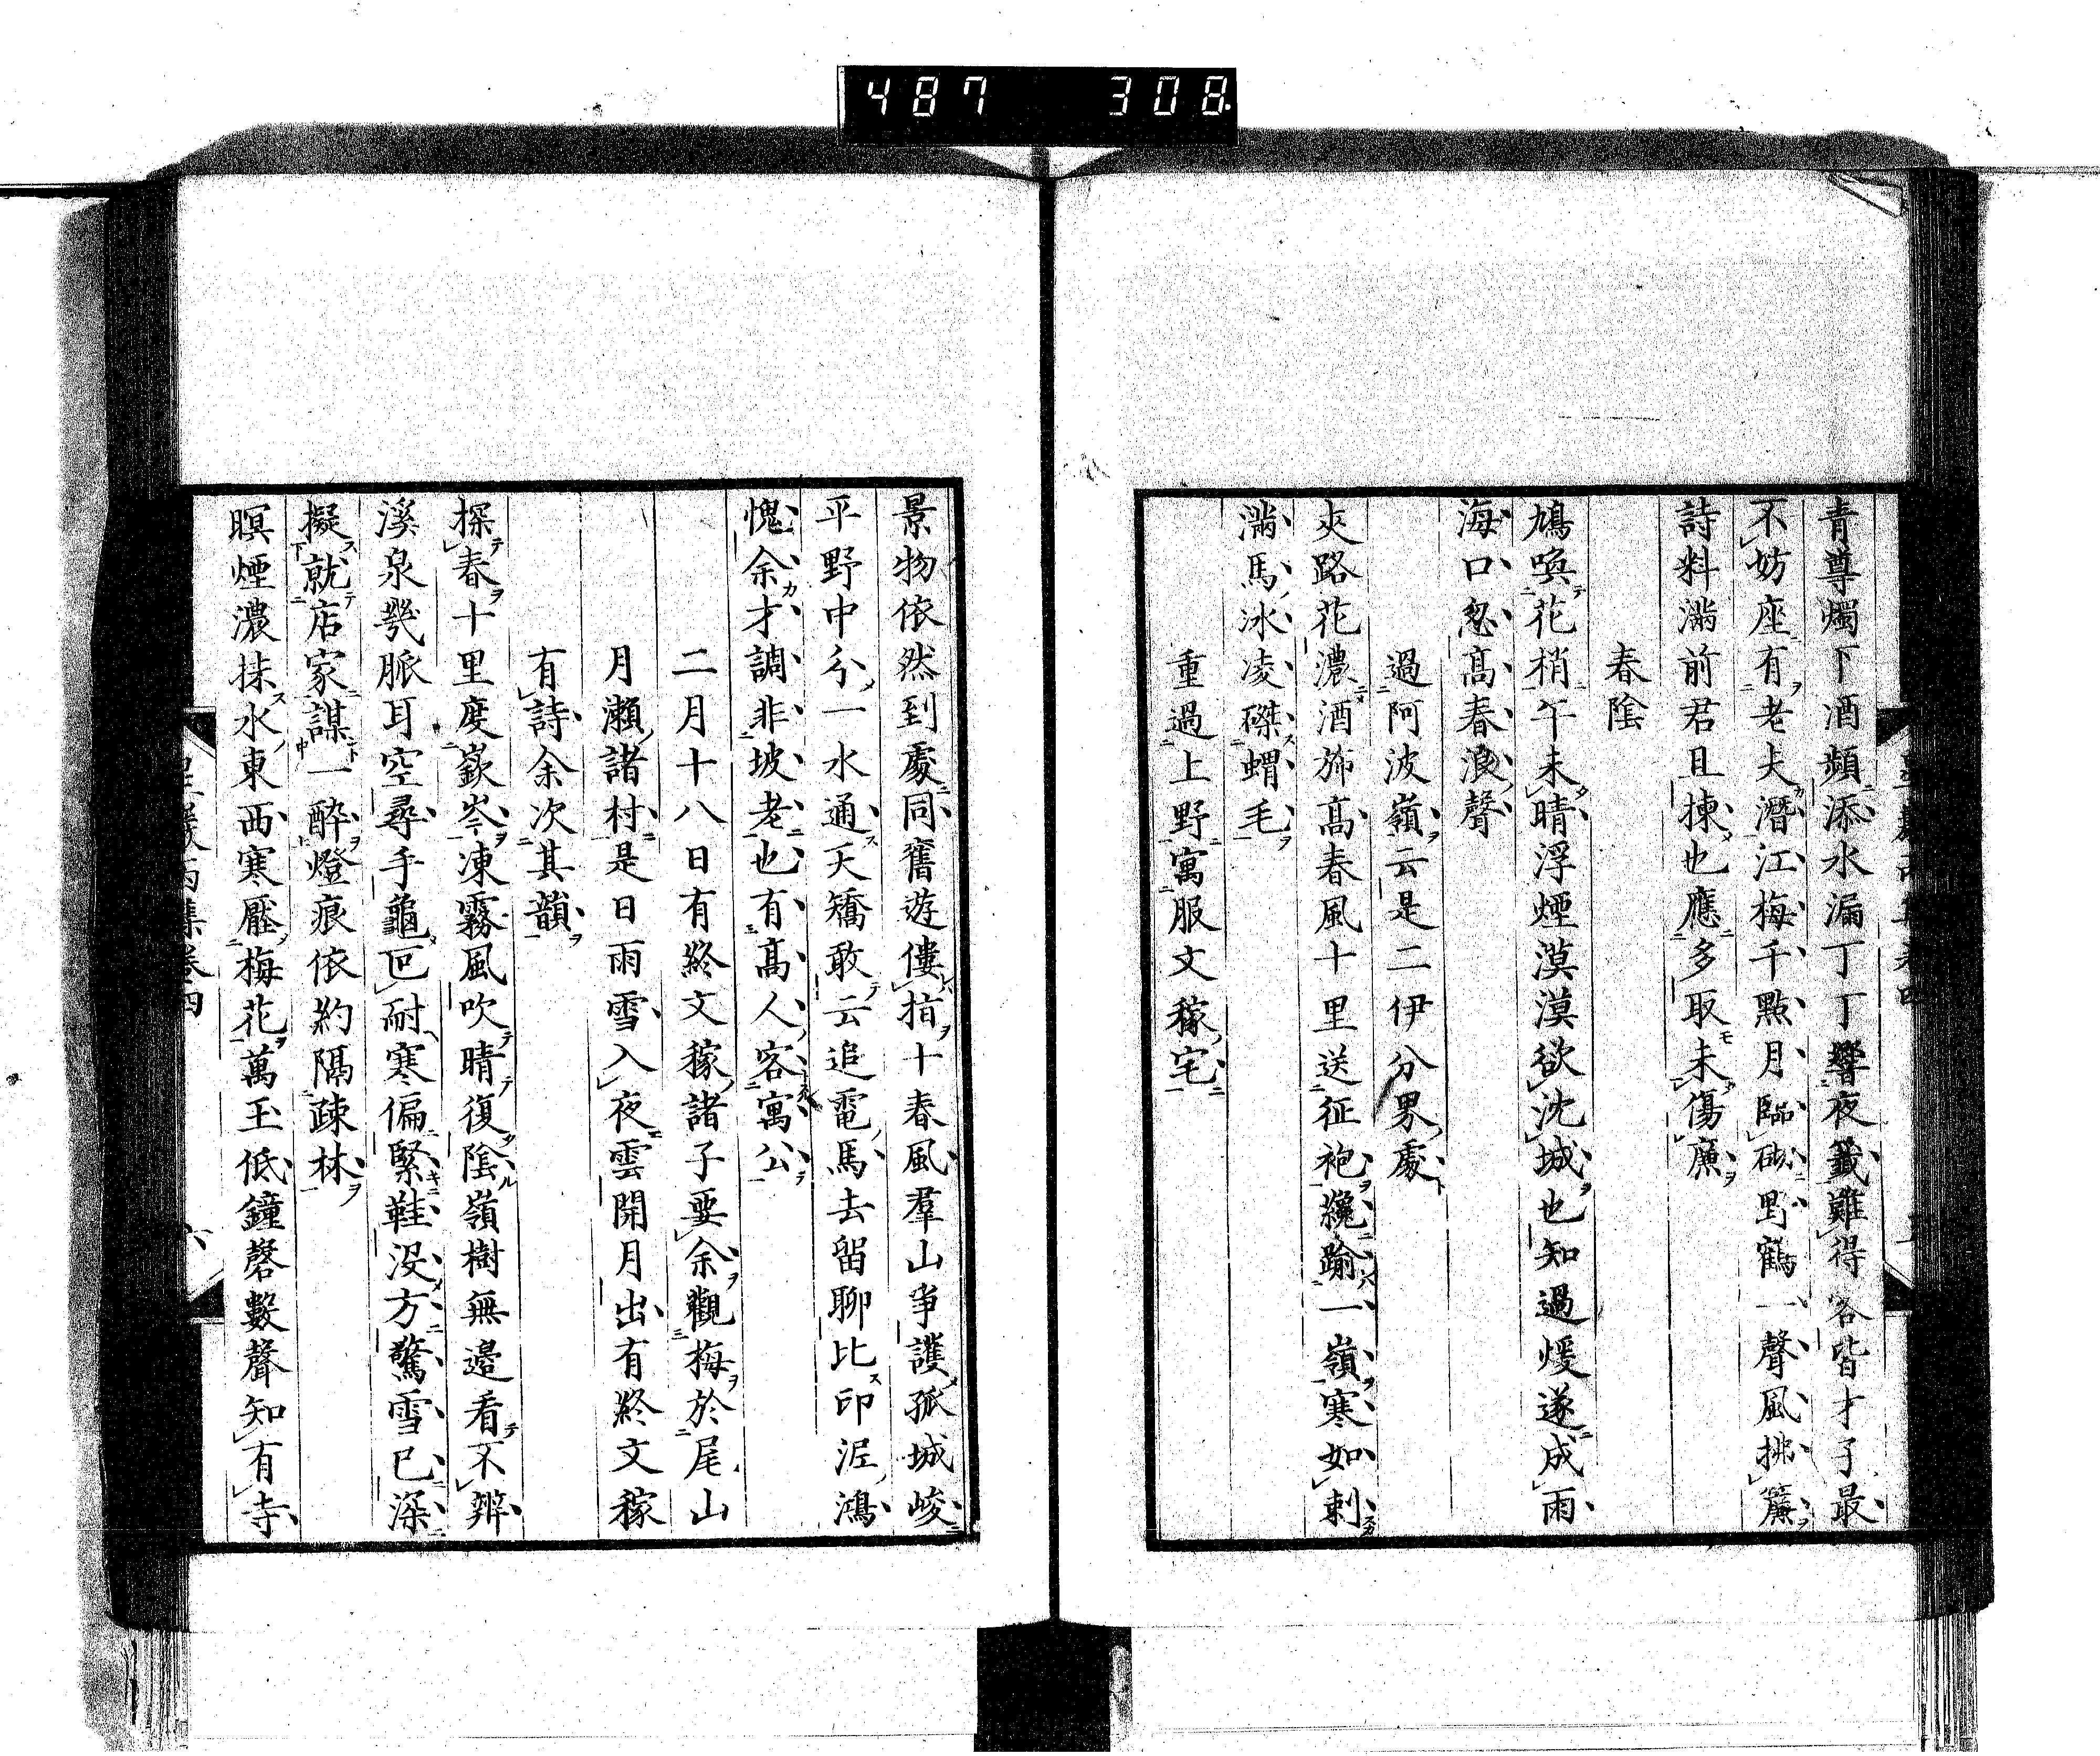 487 308
青尊燭下酒頻添水漏丁丁響夜籤難得客皆才子最
不妨座有老夫潛江梅千點月臨砌野鶴一聲風拂簾
詩料滿前君且揀也應多取未傷廉
春陰
鳩喚花梢午未晴浮煙漠漠欲沈城也知過煖遂成雨
海口怱高春浪聲
過阿波嶺云是二伊分界處
夾路花濃酒旆高春風十里送征袍纔踰一嶺寒如刺
滿馬冰凌磔蝟毛
重過上野寓服文稼宅
景物依然到處同舊遊僂指十春風羣山爭護孤城峻
平野中分一水通夭矯敢云追電馬去留聊比印泥鴻
愧余才調非坡老也有高人容寓公
二月十八日有終文稼諸子要余觀梅於尾山
月瀨諸村是日雨雪入夜雲開月出有終文稼
有詩余次其韻
探春十里度嶔岑凍霧風吹晴復陰嶺樹無邊看不辨
溪泉幾脈耳空尋手龜叵耐寒偏緊鞋沒方驚雪已深
擬就店家謀一醉燈痕依約隔疎林
暝煙濃抹水東西寒壓梅花萬玉低鐘磬數聲知有寺